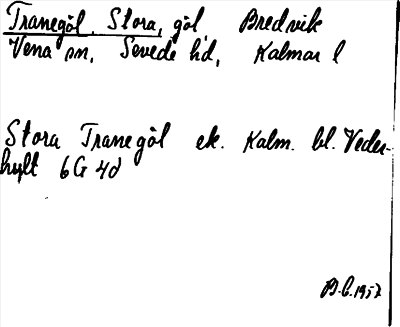 Tranegöl, Stora, göl, Bredvik
Vena sn, Sevede hd, Kalmar l
Stora Tranegöl ek. Kalm. bl. Veder-
hult 6G 4d
B.C. 1957